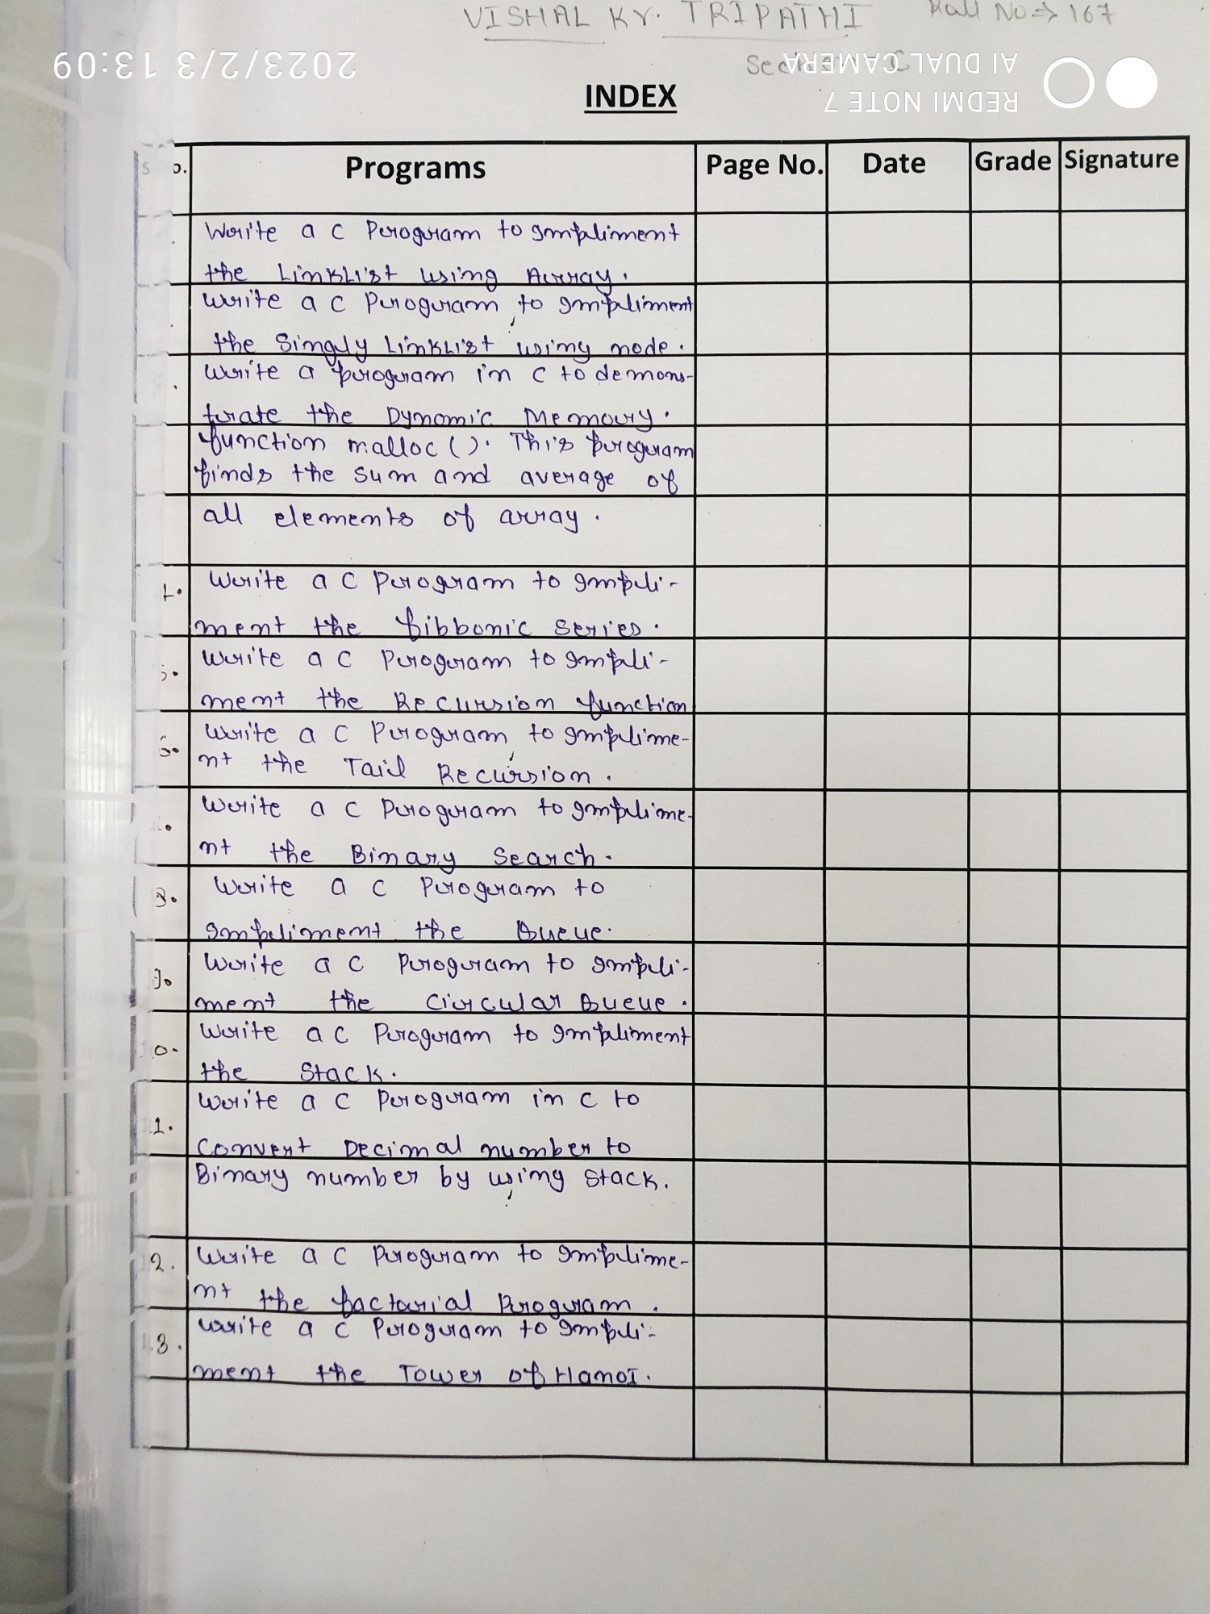 VISHAL Kr. TRIPATHI Roll No ⇒ 167
2023/2/3 13:09
AI DUAL CAMERA
REDMI NOTE 7
INDEX
Programs Page No. Date Grade Signature
Write a C Program to Impliment
the LinkList using Array.
Write a C Program to Impliment
the Singly LinkList using node.
Write a program in C to demons-
trate the Dynomic Memory.
function malloc(). This program
finds the sum and average of
all elements of array.
Write a C Program to Impli-
ment the fibbonic series.
Write a C Program to Impli-
ment the Recursion function
Write a C Program to Implime-
nt the Tail Recursion.
Write a C Program to Implime-
nt the Binary Search.
Write a C Program to
Impliment the Queue.
Write a C Program to Impli-
ment the Circular Queue.
0. Write a C Program to Impliment
the Stack.
1. Write a C Program in C to
Convert Decimal number to
Binary number by using Stack.
2. Write a C Program to Implime-
nt the factorial Program.
3. Write a C Program to Impli-
ment the Tower of HanoI.